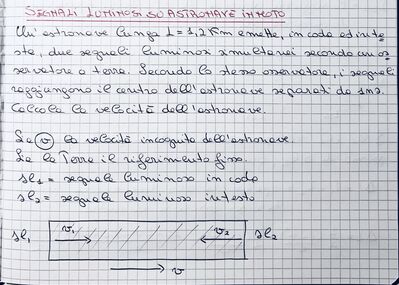 SEGNALI LUMINOSI SU ASTRONAVE IN MOTO
Un'astronave lunga L = 1,2 Km emette, in coda ed in te-
sta, due segnali luminosi simultanei secondo un os-
servatore a terra. Secondo lo stesso osservatore, i segnali
raggiungono il centro dell'astronave separati da 1 ms.
Calcola la velocità dell'astronave.
Sia v la velocità incognita dell'astronave.
Sia la Terra il riferimento fisso.
sl1 = segnale luminoso in coda
sl2 = segnale luminoso in testa
sl1 v1 v2 sl2
v